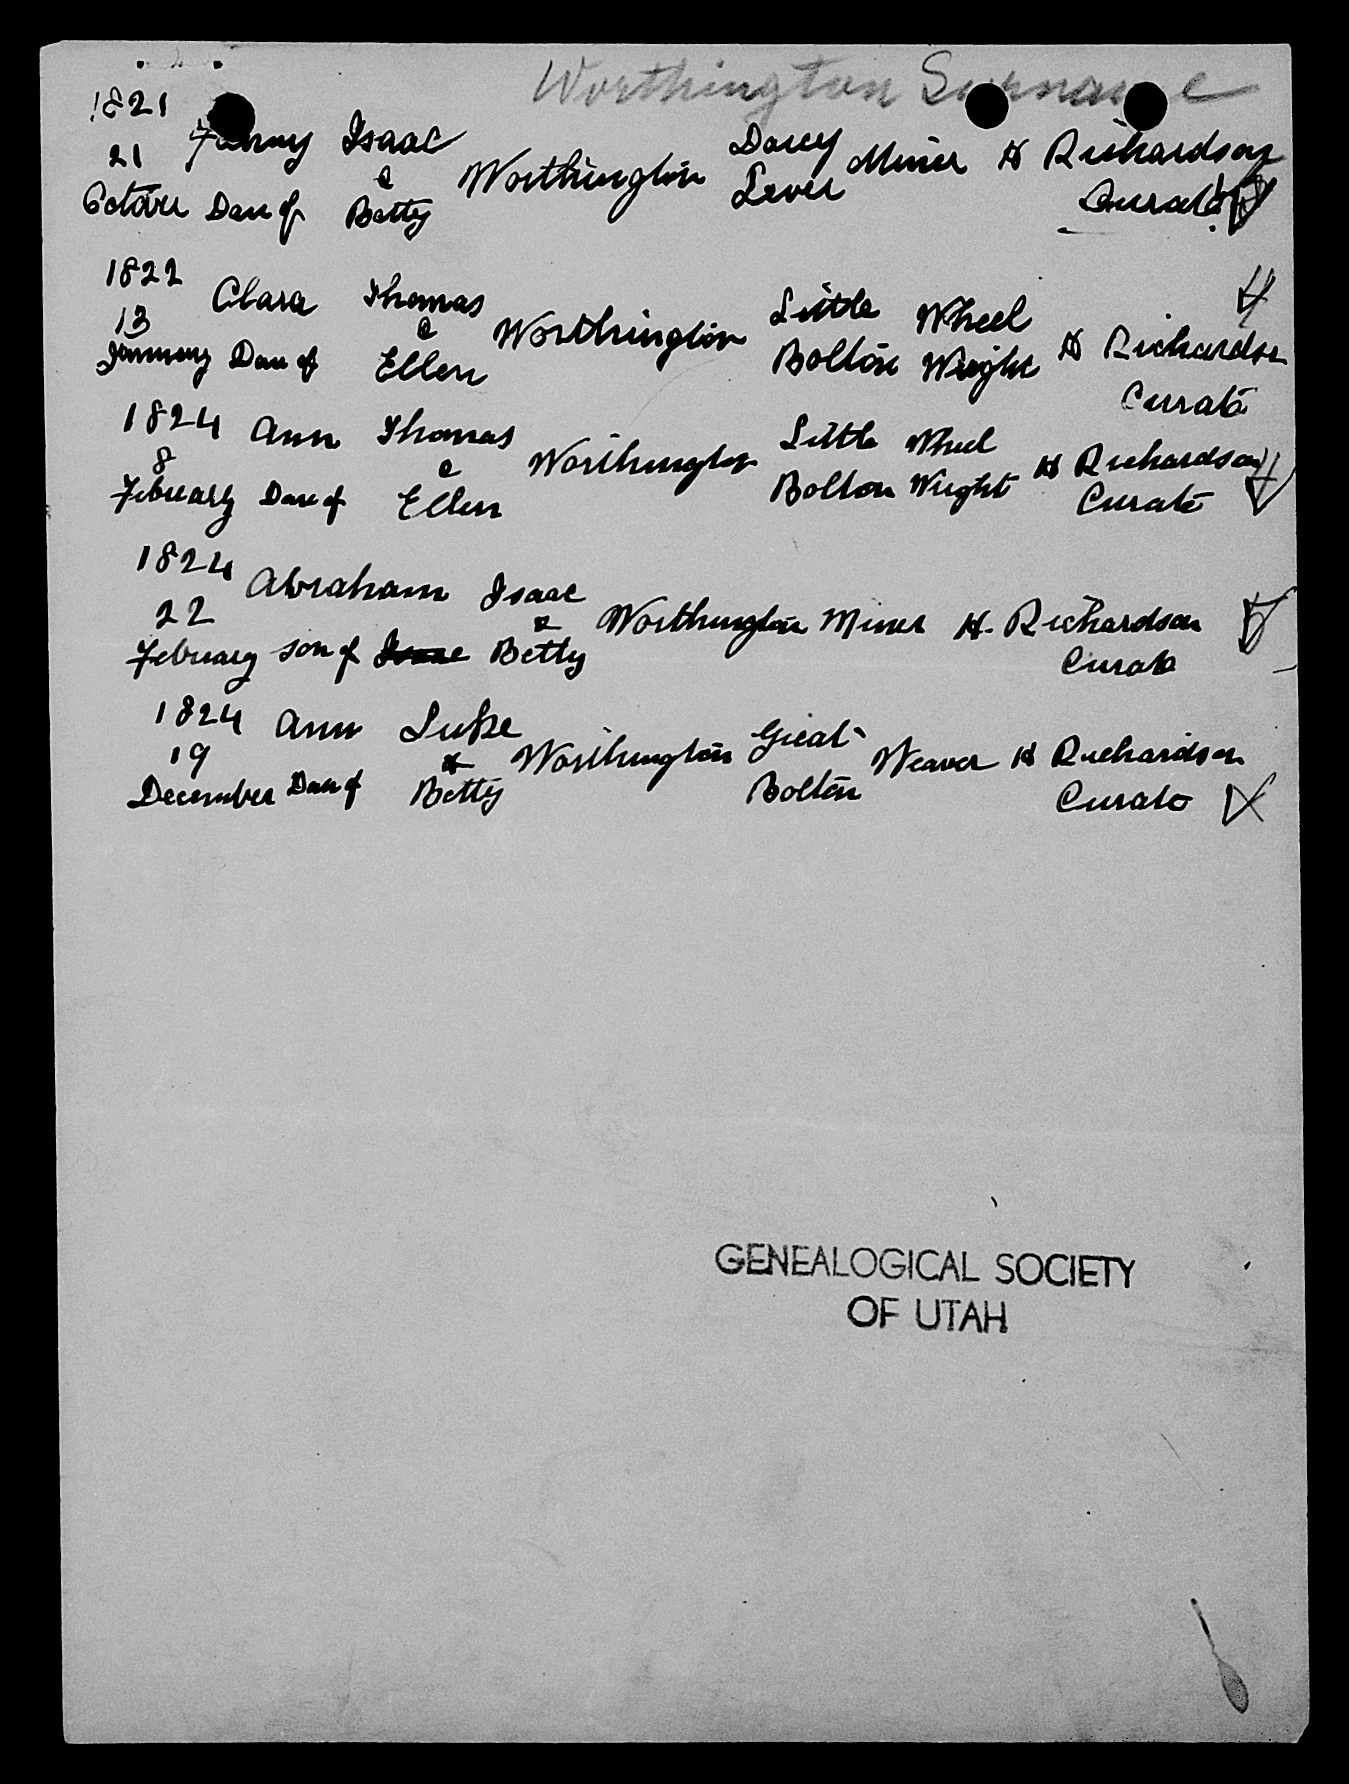 Worthington Surname
1821
21 Fanny Isaac Worthington Darcy Miner H Richardson
October Dau of & Betty Lever Curate
1822
13 Clara Thomas Worthington Little Wheel H Richardson
January Dau of & Ellen Bolton Wright Curate
1824 Ann Thomas Worthington Little Wheel H Richardson
8
February Dau of & Ellen Bolton Wright Curate
1824 Abraham Isaac Worthington Miner H. Richardson
22
February Son of Isaac & Betty Curate
1824 Ann Luke Worthington Great Weaver H Richardson
19
December Dau of & Betty Bolton Curate
GENEALOGICAL SOCIETY
OF UTAH